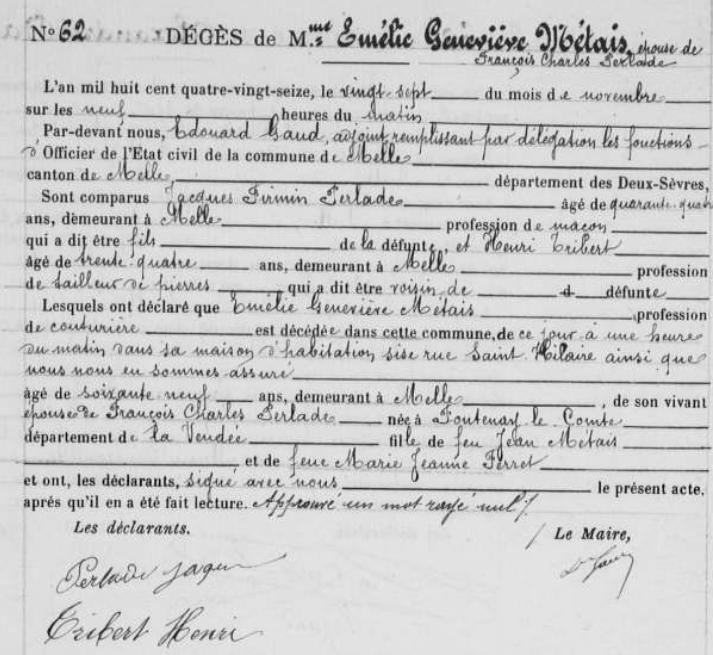 No 62 DÉCÈS de M.me Emélie Geneviève Métais, épouse de
François Charles Perlade
L'an mil huit cent quatre-vingt-seize, le vingt-sept du mois de novembre
sur les neuf heures du matin
Par-devant nous, Edouard Gaud, adjoint remplissant par délégation les fonctions
d'Officier de l'Etat civil de la commune de Melle
canton de Melle, département des Deux-Sèvres,
Sont comparus Jacques Firmin Perlade âgé de quarante-quatre
ans, demeurant à Melle profession de maçon
qui a dit être fils de la défunte, et Henri Tribert
âgé de trente-quatre ans, demeurant à Melle profession
de tailleur de pierres qui a dit être voisin de d défunte
Lesquels ont déclaré que Emélie Geneviève Métais, profession
de couturière est décédée dans cette commune, de ce jour à une heure
du matin dans sa maison d'habitation sise rue Saint-Hilaire ainsi que
nous nous en sommes assuré
âgé de soixante-neuf ans, demeurant à Melle, de son vivant
épouse de François Charles Perlade née à Fontenay-le-Comte
département de la Vendée fille de feu Jean Métais
et de feue Marie Jeanne Ferret
et ont, les déclarants, signé avec nous le présent acte,
après qu'il en a été fait lecture. Approuvé un mot rayé nul
Les déclarants. Le Maire,
Perlade Jaque
Tribert Henri